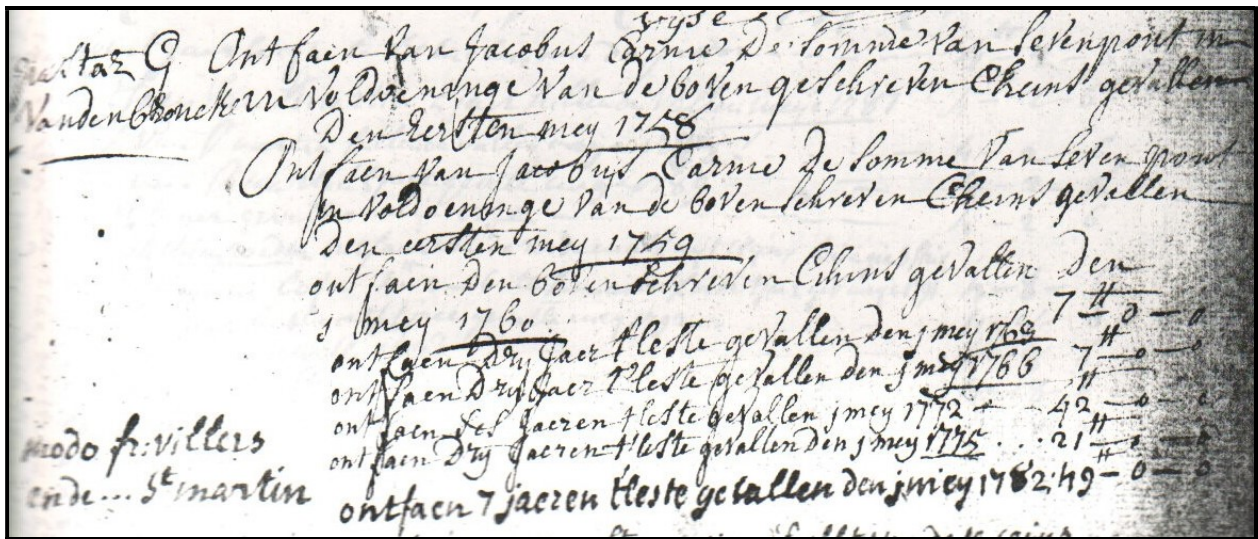 Ontfaen van Jacobus Carme De somme van sevenpont in
vandenbrouck voldoeninge van de boven geschreven Cheins gevallen
Den eersten mey 1758
Ontfaen van Jacobus Carme De somme van seven pont
in voldoeninge van de boven schreven Cheins gevallen
den eersten mey 1759
ontfaen den boven schreven Cheins gevallen den
j mey 1760 7 # 0 - 0
ontfaen Dry Jaer tleste gevallen den j mey 1763 #
ontfaen Dry Jaer tleste gevallen den j mey 1766 7 - 0 - 0
ontfaen ses Jaeren tleste gevallen j mey 1772 - - 42 - 0 - 0
ontfaen Dry Jaeren tleste gevallen den j mey 1775 . . . 21 - 0 - 0
modo fr: villers
ende ... St martin
ontfaen 7 jaeren tleste gevallen den j mey 1782, 49 - 0 - 0